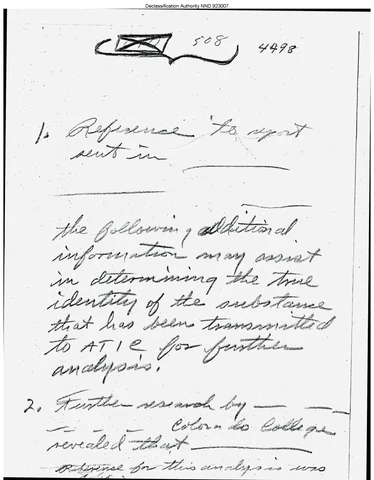 Declassification Authority NND 923007
508 4498
1. Reference to report
sent in
the following additional
information may assist
in determining the true
identity of the substance
that has been transmitted
to ATIC for further
analysis.
2. Further research by
Colorado College
revealed that
for this analysis was